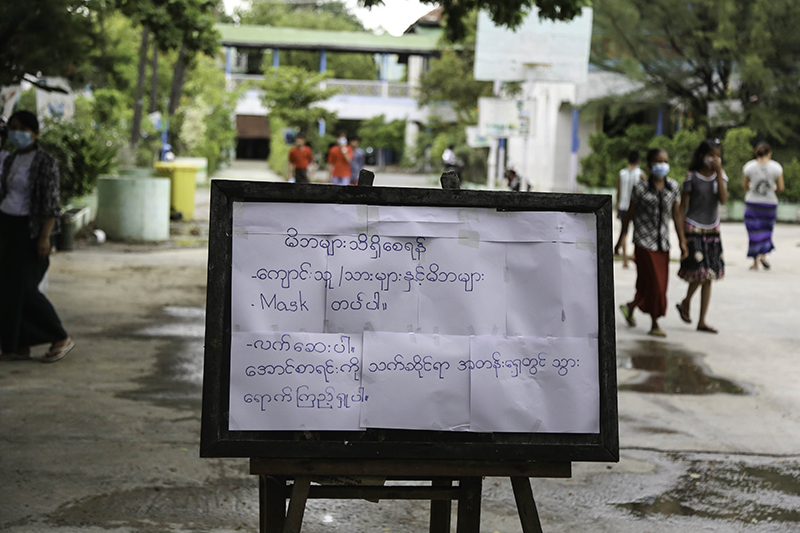 မိဘများသိရှိစေရန်
-ကျောင်းသူ/သားများနှင့်မိဘများ
- Mask တပ်ပါ။
-လက်ဆေးပါ။
အောင်စာရင်းကို သက်ဆိုင်ရာ အတန်းရှေ့တွင် သွား
ရောက်ကြည့်ရှုပါ။